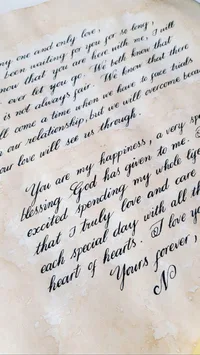 my one and only love,
been waiting for you for so long.
now that you are here with me, I will
ever let you go. We both know that
is not always fair. We know that there
ll come a time when we have to face trials
our relationship, but we will overcome beca
our love will see us through.
You are my happiness, a very spe
blessing God has given to me.
excited spending my whole life
that I truly love and care
each special day with all th
heart of hearts. I love yo
Yours forever,
N